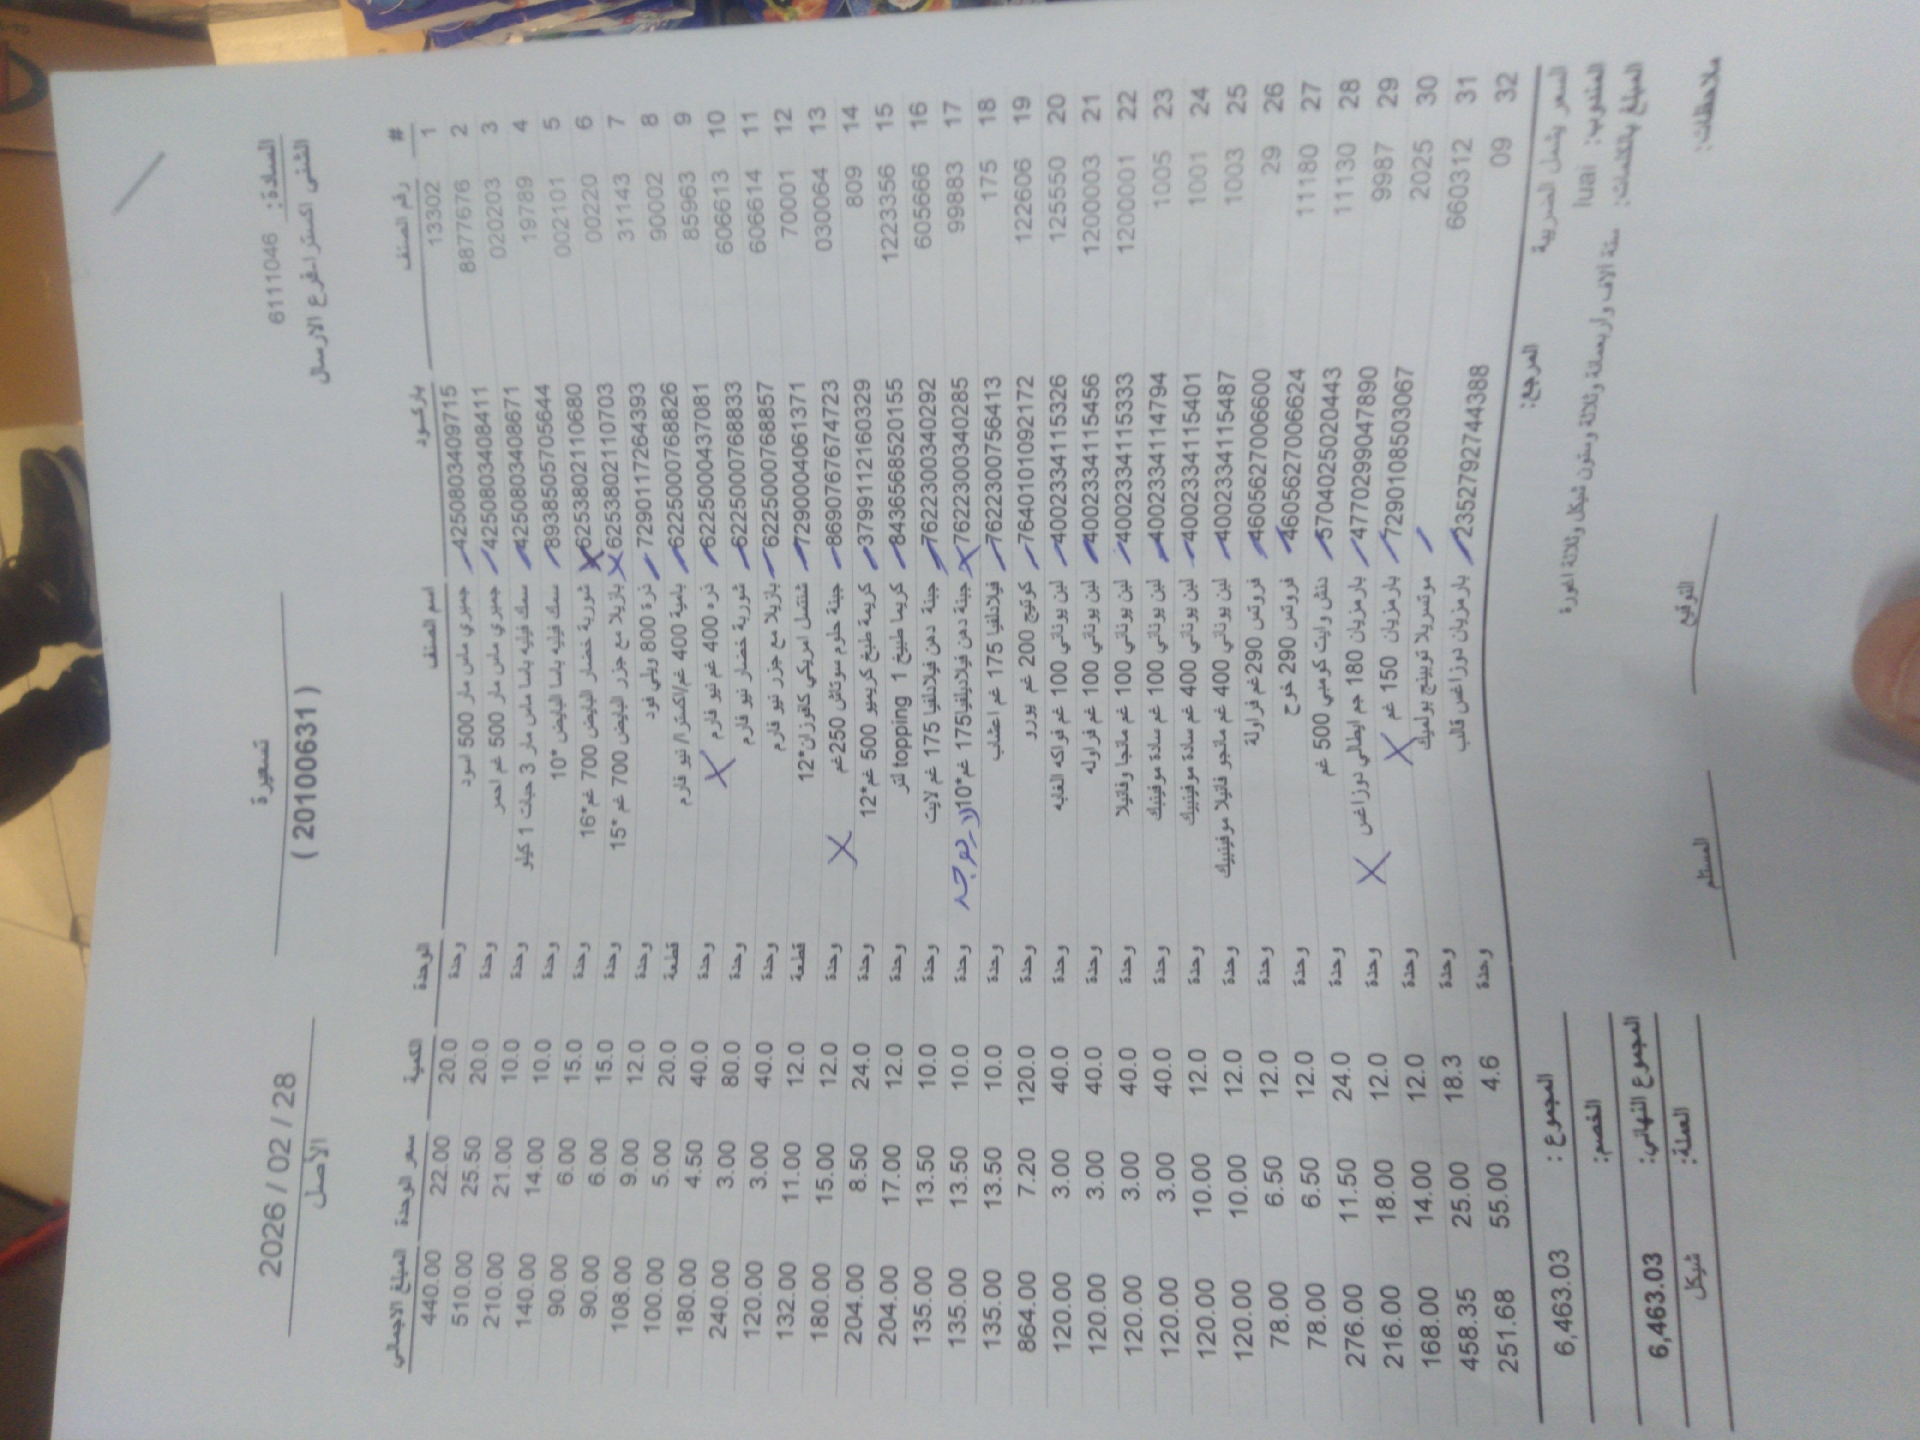 السادة: 6111046
الشني اكسترا-فرع الارسال
تسعيرة
( 20100631 )
2026 / 02 / 28
الأصل
# رقم الصنف باركود اسم الصنف الوحدة الكمية سعر الوحدة المبلغ الاجمالي
1 13302 4250803409715 جمبري ماس مار 500 اسود وحدة 20.0 22.00 440.00
2 8877676 4250803408411 جمبري ماس مار 500 غم احمر وحدة 20.0 25.50 510.00
3 020203 4250803408671 سمك فيليه باسا ماس مار 3 حبات 1 كيلو وحدة 10.0 21.00 210.00
4 19789 8938505705644 سمك فيليه باسا البايض *10 وحدة 10.0 14.00 140.00
5 002101 6253802110680 شوربة خضار البايض 700 غم*16 وحدة 15.0 6.00 90.00
6 00220 6253802110703 بازيلا مع جزر البايض 700 غم *15 وحدة 15.0 6.00 90.00
7 31143 7290117264393 ذرة 800 ويلي فود وحدة 12.0 9.00 108.00
8 90002 6225000768826 بامية 400 غم/اكسترا/ نيو فارم قطعة 20.0 5.00 100.00
9 85963 6225000437081 ذره 400 غم نيو فارم وحدة 40.0 4.50 180.00
10 6066613 6225000768833 شوربة خضار نيو فارم وحدة 80.0 3.00 240.00
11 6066614 6225000768857 بازيلا مع جزر نيو فارم وحدة 40.0 3.00 120.00
12 70001 7290004061371 شنتسل امريكي كافوزان*12 قطعة 12.0 11.00 132.00
13 030064 8690767674723 جبنة حلوم سوتاش 250غم وحدة 12.0 15.00 180.00
14 809 3799112160329 كريمة طبخ كريميو 500 غم*12 وحدة 24.0 8.50 204.00
15 1223356 8436568520155 كريما طبيخ topping 1 لتر وحدة 12.0 17.00 204.00
16 605666 7622300340292 جبنة دهن فيلادلفيا 175 غم لايت وحدة 10.0 13.50 135.00
17 99883 7622300340285 جبنة دهن فيلادلفيا175 غم*10 لا يوجد وحدة 10.0 13.50 135.00
18 175 7622300756413 فيلادلفيا 175 غم اعشاب وحدة 10.0 13.50 135.00
19 122606 7640101092172 كوتيج 200 غم يورو وحدة 120.0 7.20 864.00
20 125550 4002334115326 لبن يوناني 100 غم فواكه الغابه وحدة 40.0 3.00 120.00
21 1200003 4002334115456 لبن يوناني 100 غم فراوله وحدة 40.0 3.00 120.00
22 1200001 4002334115333 لبن يوناني 100 غم مانجا وفانيلا وحدة 40.0 3.00 120.00
23 1005 4002334114794 لبن يوناني 100 غم سادة موفينبك وحدة 40.0 3.00 120.00
24 1001 4002334115401 لبن يوناني 400 غم سادة موفينبيك وحدة 12.0 10.00 120.00
25 1003 4002334115487 لبن يوناني 400 غم مانجو فانيلا موفينبيك وحدة 12.0 10.00 120.00
26 29 4605627006600 فروتس 290غم فراولة وحدة 12.0 6.50 78.00
27 11180 4605627006624 فروتس 290 خوخ وحدة 12.0 6.50 78.00
28 11130 5704025020443 دنش وايت كومبي 500 غم وحدة 24.0 11.50 276.00
29 9987 4770299047890 بارمزيان 180 جم ايطالي دوزاغس وحدة 12.0 18.00 216.00
30 2025 7290108503067 بارمزيان 150 غم وحدة 12.0 14.00 168.00
31 660312 موتسريلا توبينج بولميك وحدة 18.3 25.00 458.35
32 09 2352792744388 بارمزيان دوزاغس قالب وحدة 4.6 55.00 251.68
السعر يشمل الضريبة المرجع: المجموع : 6,463.03
المندوب: luai الخصم:
المبلغ بالكلمات: ستة الاف واربعمائة وثلاثة وستون شيكل وثلاثة اغورة المجموع النهائي: 6,463.03
العملة: شيكل
ملاحظات: التوقيع المستلم